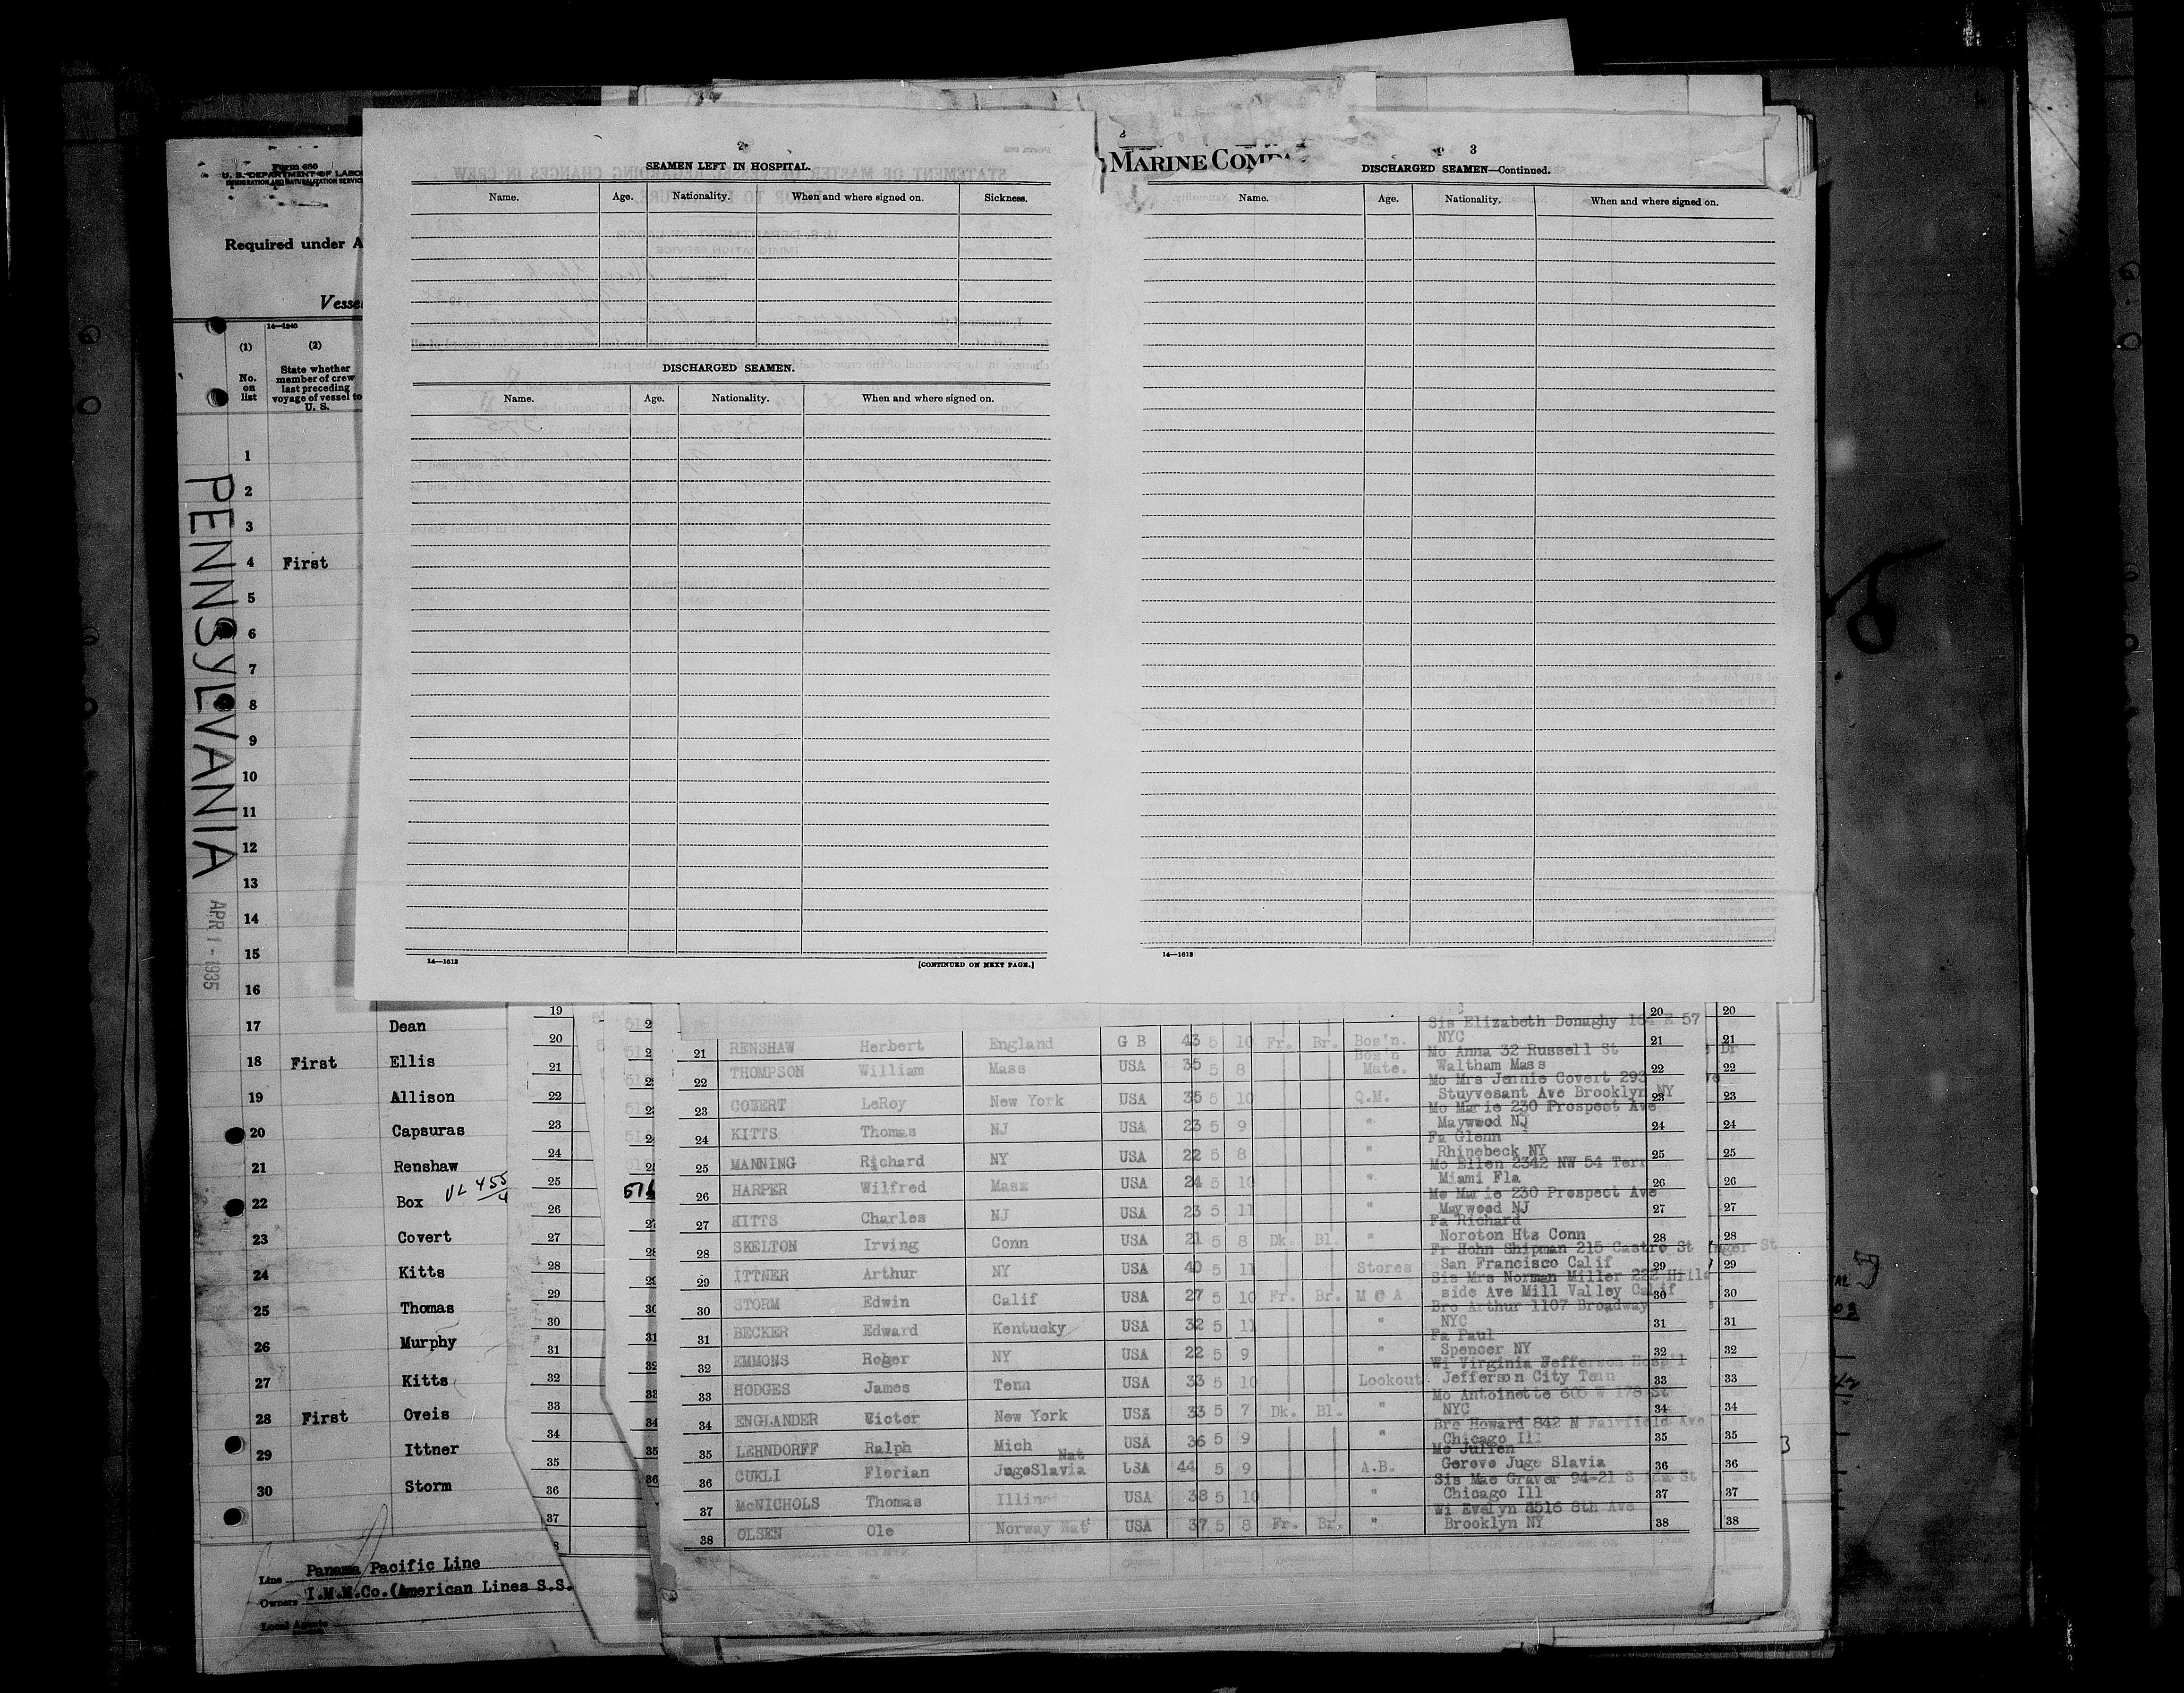 Form 680
U. S. DEPARTMENT OF LABOR
IMMIGRATION AND NATURALIZATION SERVICE
Required under A
Vesse
14—1240
(1)
No. on list
(2)
State whether member of crew last preceding voyage of vessel to U. S.
PENNSYLVANIA
APR 1 - 1935
1
2
3
4 First
5
6
7
8
9
10
11
12
13
14
15
16
17 Dean
18 First Ellis
19 Allison
20 Capsuras
21 Renshaw
22 Box
23 Covert
24 Kitts
25 Thomas
26 Murphy
27 Kitts
28 First Oveis
29 Ittner
30 Storm
Line Panama Pacific Line
Owners I.M.M.Co.(American Lines S.S.
Local Agents
2
SEAMEN LEFT IN HOSPITAL.
Name. Age. Nationality. When and where signed on. Sickness.
DISCHARGED SEAMEN.
Name. Age. Nationality. When and where signed on.
14—1613
[CONTINUED ON NEXT PAGE.]
MARINE COMPA
3
DISCHARGED SEAMEN—Continued.
Name. Age. Nationality. When and where signed on.
14—1613
Sis Elizabeth Donaghy 57
21 RENSHAW Herbert England G B 43 5 10 Fr. Br. Bos'n. NYC 21
Mo Anna 32 Russell St
22 THOMPSON William Mass USA 35 5 8 Bos'n Mate. Waltham Mass 22
Mo Mrs Jennie Covert 293
23 COVERT LeRoy New York USA 35 5 10 Q.M. Stuyvesant Ave Brooklyn NY 23
Mo Marie 230 Prospect Ave
24 KITTS Thomas NJ USA 23 5 9 " Maywood NJ 24
Fa Glenn
25 MANNING Richard NY USA 22 5 8 " Rhinebeck NY 25
Mo Ellen 2342 NW 54 Terr
26 HARPER Wilfred Mass USA 24 5 10 " Miami Fla 26
Mo Marie 230 Prospect Ave
27 KITTS Charles NJ USA 23 5 11 " Maywood NJ 27
Fa Richard
28 SKELTON Irving Conn USA 21 5 8 Dk. Bl. " Noroton Hts Conn 28
Fr Hohn Shipman 215 Castro St
29 ITTNER Arthur NY USA 40 5 11 Stores San Francisco Calif 29
Sis Mrs Norman Miller 222 Hill
30 STORM Edwin Calif USA 27 5 10 Fr. Br. M @ A side Ave Mill Valley Calif 30
Bro Arthur 1107 Broadway
31 BECKER Edward Kentucky USA 32 5 11 " NYC 31
Fa Paul
32 EMMONS Roger NY USA 22 5 9 " Spencer NY 32
Wi Virginia Jefferson Hospil
33 HODGES James Tenn USA 33 5 10 Lookout Jefferson City Tenn 33
Mo Antoinette 605 W 178 St
34 ENGLANDER Victor New York USA 33 5 7 Dk. Bl. " NYC 34
Bro Howard 842 N Fairfield Ave
35 LEHNDORFF Ralph Mich USA 36 5 9 " Chicago Ill 35
Mo Julien
36 CUKLI Florian JugoSlavia Nat USA 44 5 9 A.B. Gerovo Jugo Slavia 36
Sis Mae Graver 94-21 S St
37 McNICHOLS Thomas Illinoi USA 38 5 10 " Chicago Ill 37
Wi Evelyn 5516 8th Ave
38 OLSEN Ole Norway Nat USA 37 5 8 Fr. Br. " Brooklyn NY 38